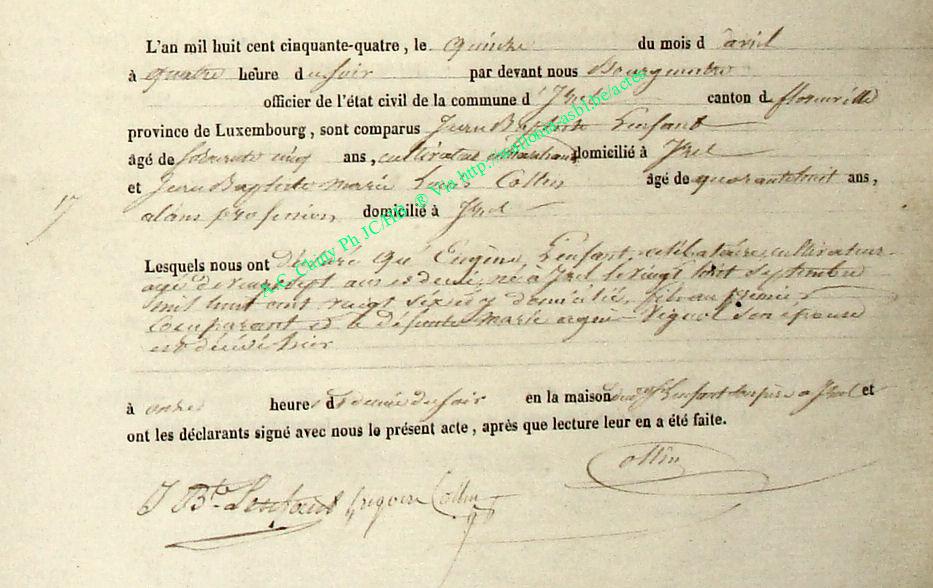 L'an mil huit cent cinquante-quatre, le quinze du mois d'avril
à quatre heure du soir par devant nous Bourgmestre
officier de l'état civil de la commune d'Izel canton de florenville
province de Luxembourg, sont comparus Jean Baptiste Lenfant
âgé de soixante cinq ans, cultivateur domicilié à Izel
et Jean Baptiste marie Collin âgé de quarante huit ans,
17 profession domicilié à Izel
Lesquels nous ont déclaré que Eugène Lenfant, célibataire, cultivateur
agé de vingt sept ans et demi, né à Izel le vingt huit septembre
mil huit cent vingt six et y domicilié, fils au premier
comparant et de défunte marie Vignol son épouse
est décédé hier
à onze heures et demie du soir en la maison Lenfant son père a Izel et
ont les déclarants signé avec nous le présent acte, après que lecture leur en a été faite.
Collin
J Bte Lenfant Grégoire Collin
A.C. Chiny Ph JC/HB. ® Via http://
asbl.be/actes